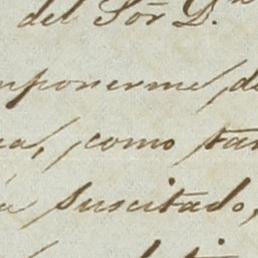 del Sõr D.n
mponerme, d
a, como ta
a suscitado,